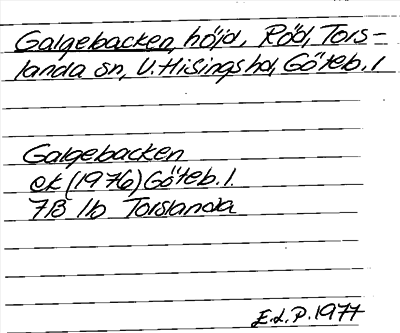 Galgebacken, höjd, Röd, Tors-
landa sn, V. Hisings hd, Göteb. l
Galgebacken
ek (1976) Göteb. l.
7B 1b Torslanda
E.L.P. 1977